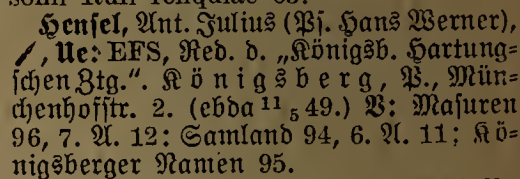 Hensel, Ant. Julius (Ps. Hans Werner),
, Ue: EFS, Red. d. „Königsb. Hartung=
schen Ztg.". Königsberg, P., Mün=
chenhofstr. 2. (ebda 11 5 49.) V: Masuren
96, 7. A. 12; Samland 94, 6. A. 11; Kö=
nigsberger Namen 95.